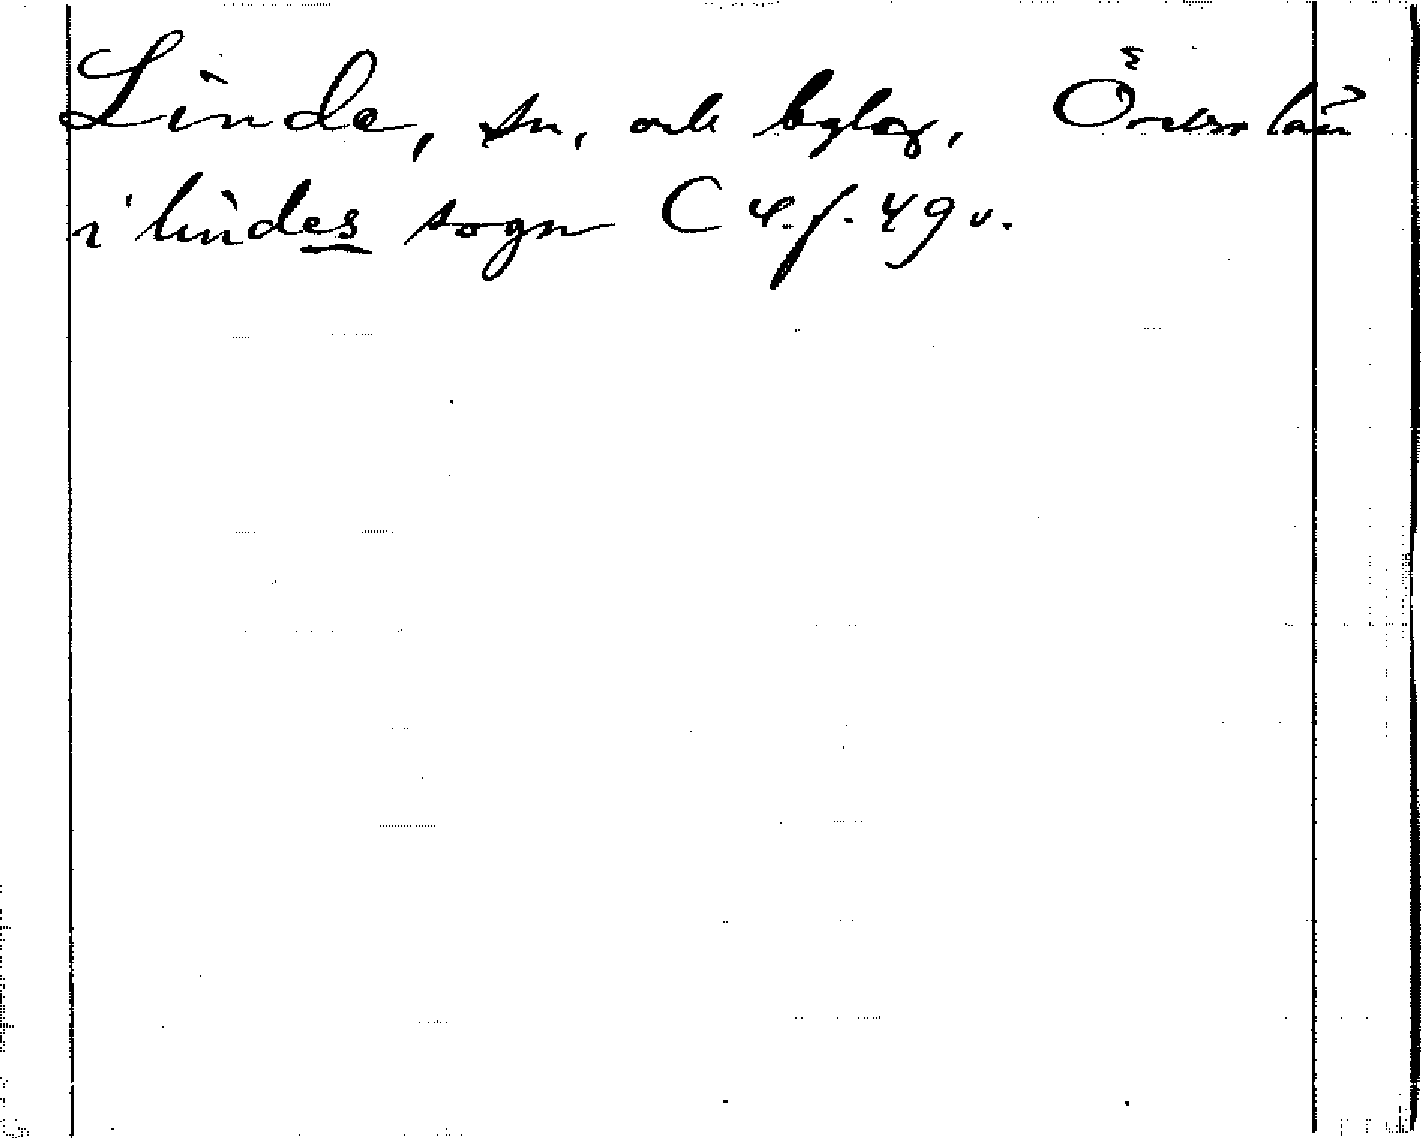 Linde, sn, och bglag, Örebro län
i lindes sogn C 4. f. 49 v.